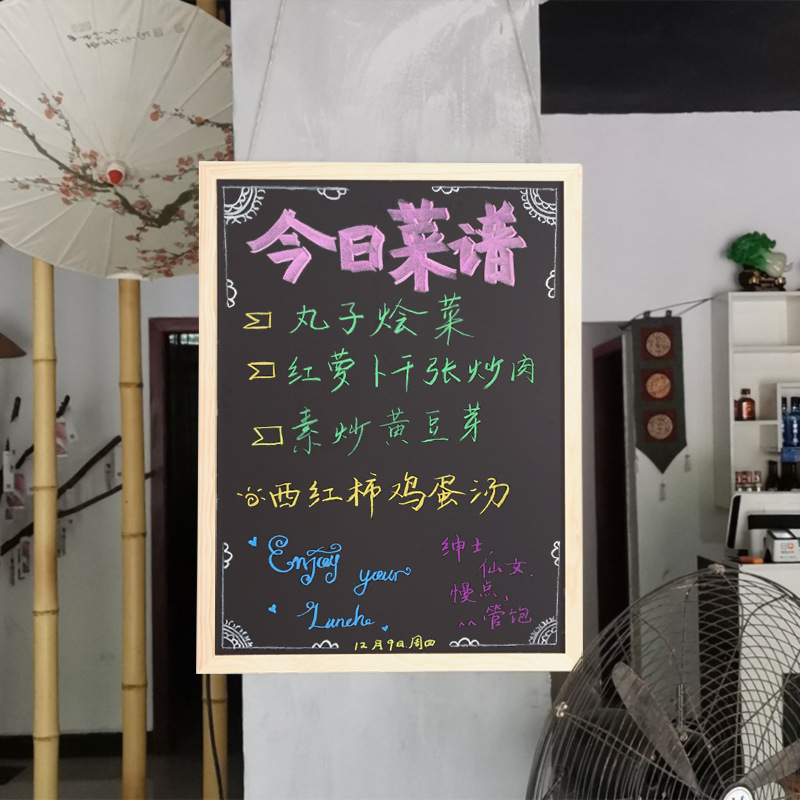 今日菜谱
丸子烩菜
红萝卜干张炒肉
素炒黄豆芽
西红柿鸡蛋汤
Enjoy
your
Lunche
绅士,
仙女.
慢点,
管饱
12月9日.周四